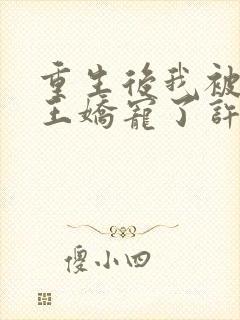 重生後我被
王嬌寵了許
傻小四